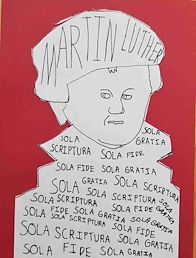 MARTIN LUTHER
SOLA SOLA
SCRIPTURA GRATIA
SOLA FIDE
SOLA FIDE SOLA GRATIA
SOLA GRATIA SOLA
SCRIPTURA
SOLA SOLA SCRIPTURA
SOLA SCRIPTURA SOLA FIDE
SOLA GRATIA
SOLA FIDE SOLA GRATIA
SOLA SCRIPTURA SOLA
SOLA FIDE SOLA GRATIA